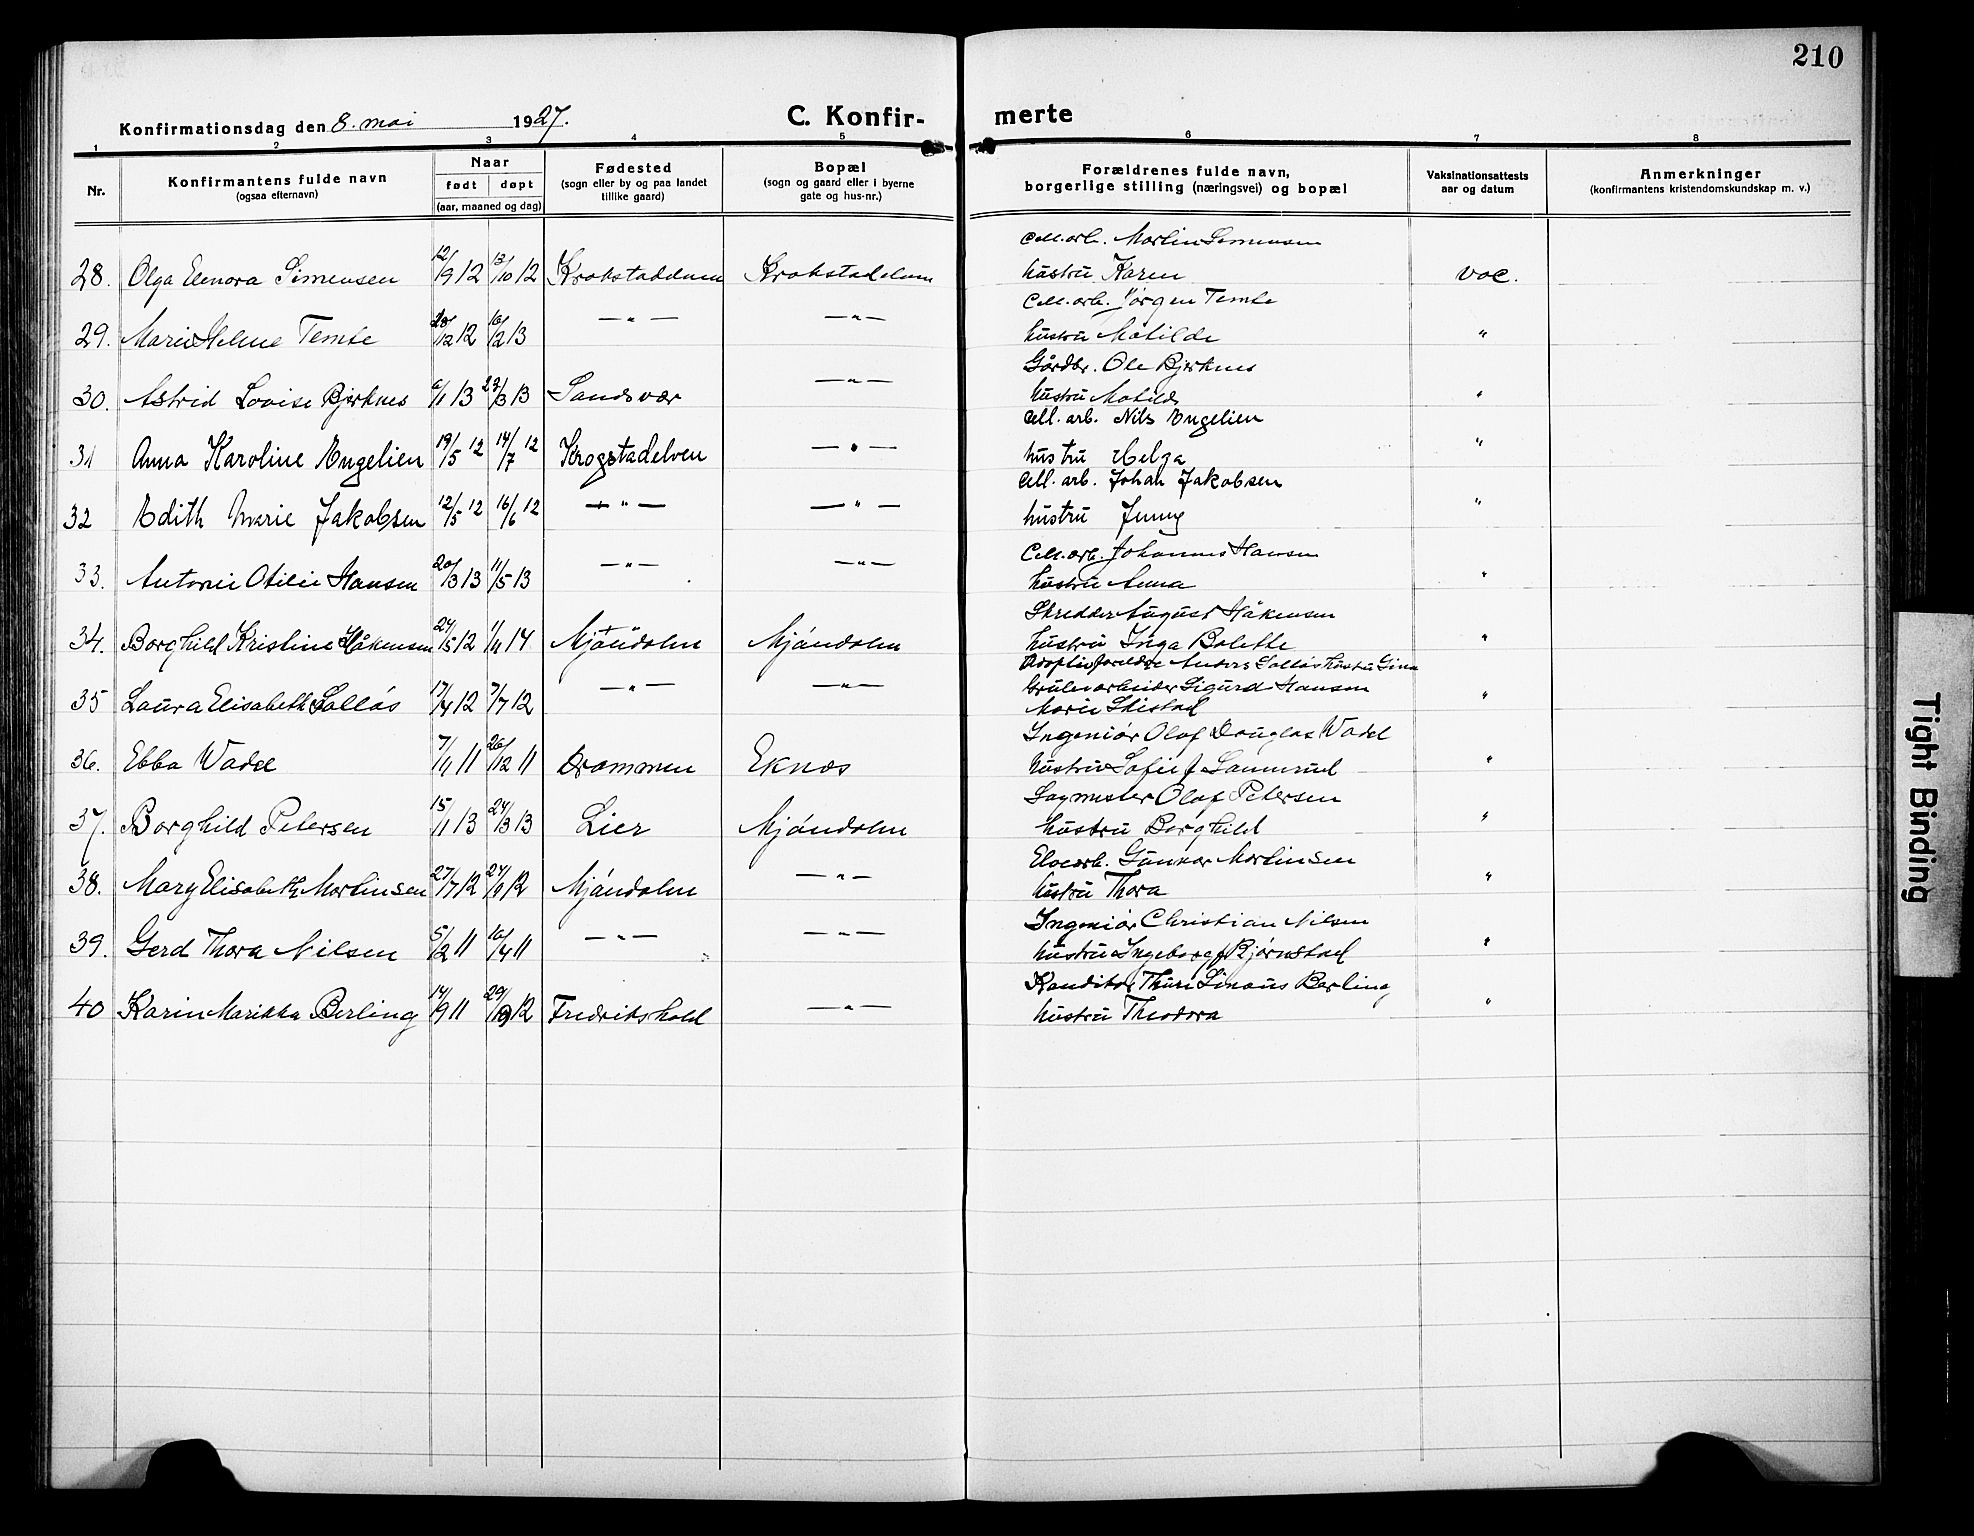 210
Konfirmationsdag den 8. mai 1927. C. Konfir- merte
1 2 3 4 5 6 7 8
Nr. Konfirmantens fulde navn (ogsaa efternavn) Naar født døpt (aar, maaned og dag) Fødested (sogn eller by og paa landet tillike gaard) Bopæl (sogn og gaard eller i byerne gate og hus-nr.) Forældrenes fulde navn, borgerlige stilling (næringsvei) og bopæl Vaksinationsattests aar og datum Anmerkninger (konfirmantens kristendomskundskap m. v.)
Cell. arb. Martin Simensen
28. Olga Elenora Simensen 12/9 12 13/10 12 Krokstadelven Krokstadelven hustru Karen vac.
Cell. arb. Jörgen Temte
29. Marie Helene Temte 28/12 12 16/2 13 —"— —"— hustru Matilde "
Gårdbr. Ole Bjerknes
30. Astrid Lovise Bjerknes 6/1 13 23/3 13 Sandsvær —"— hustru Matilde "
Cell. arb. Nils Engelien
31 Anna Karoline Engelien 19/5 12 14/7 12 Krogstadelven —"— hustru Helga "
Cell. arb. Johan Jakobsen
32 Edith Marie Jakobsen 12/5 12 16/6 12 —"— —"— hustru Jenny "
Cell. arb. Johannes Hansen
33. Antonie Otilie Hansen 20/3 13 11/5 13 —"— —"— hustru Anna "
Skredder August Håkensen
34. Borghild Kristine Håkensen 24/5 12 1/11 14 Mjöndalen Mjöndalen hustru Inga Bolette "
Adoptivforeldre Anders Solløs hustru Gina
Gruvearbeider Sigurd Hansen
35 Laura Elisabeth Solløs 17/4 12 7/7 12 —"— —"— Marie Skistad "
Ingeniör Olaf Douglas Wadel
36. Ebba Wadel 7/11 11 26/12 11 Drammen Eknes hustru Sofie f Sannerud "
Sagmester Olaf Petersen
37. Borghild Petersen 15/11 13 24/3 13 Lier Mjöndalen hustru Borghild "
Elvearb. Gunnar Martinsen
38. Mary Elisabeth Martinsen 27/7 12 24/9 12 Mjöndalen —"— hustru Thora "
Ingeniör Christian Nilsen
39. Gerd Thora Nilsen 5/2 11 16/4 11 —"— —"— hustru Ingeborg f Bjørnstad "
Konditor Thure Linaus Berling
40 Karin Marikka Berling 14/9 11 29/9 12 Fredrikshald —"— hustru Theodora "
Tight Binding